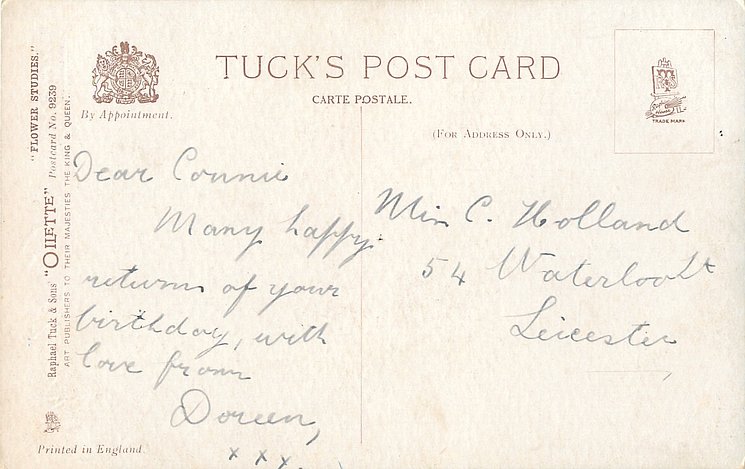 "FLOWER STUDIES."
Raphael Tuck & Sons' "OILETTE" Postcard No. 9239
ART PUBLISHERS TO THEIR MAJESTIES THE KING & QUEEN.
By Appointment.
TUCK'S POST CARD
CARTE POSTALE.
(FOR ADDRESS ONLY.)
TRADE MARK
Dear Connie
Many happy
returns of your
birthday, with
love from
Doreen,
x x x.
Miss C. Holland
54 Waterloo St
Leicester
Printed in England.